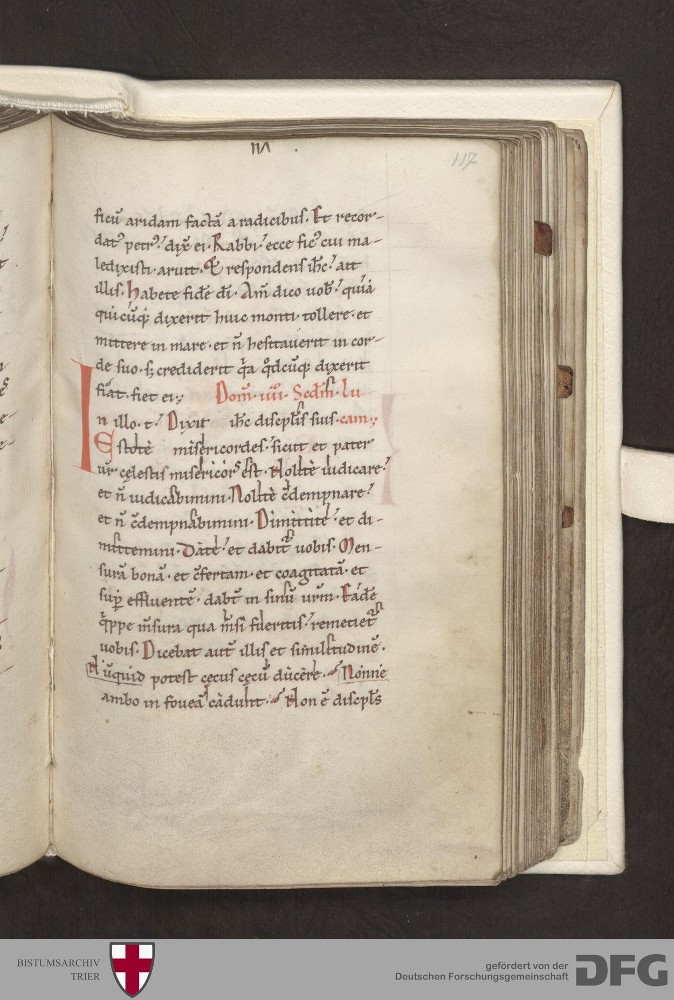 117
ficū aridam factā a radicibus. Et recor-
dat᾽ petr᾽ dix̄ ei. Rabbi ecce fic᾽ cui ma-
ledixisti aruit. Et respondens ih̄c ait
illis. Habete fidē dī. Am̄ dico uob̄ quia
quicūq; dixerit huic monti tollere et
mittere in mare. et n̄ hesitauerit in cor-
de suo. s; crediderit q̄a q̄dcūq; dixerit
fiat. fiet ei; Dom̄. iiii. Scdm̄. lu
In illo. t. Dixit ih̄c discipl̄is suis. cam;
Estote misericordes. sicut et pater
ur̄ cęlestis misericors est. Nolite iudicare.
et n̄ iudicabimini. Nolite c̄dempnare.
et n̄ c̄dempnabimini. Dimittite. et di-
mittemini. Date. et dabit᾽ uobis. Men-
surā bonā. et c̄fertam. et coagitatā. et
sup̄ effluentē. dabt̄ in sinū ur̄m. Eadē
q̄ppe m̄sura qua m̄si fueritis. remetiet᾽
uobis. Dicebat aut̄ illis et similitudinē.
Nūquid potest cęcus cęcū ducere. Nonne
ambo in foueā cadunt. Non ē discipl̄s
BISTUMSARCHIV
TRIER
gefördert von der
Deutschen Forschungsgemeinschaft
DFG